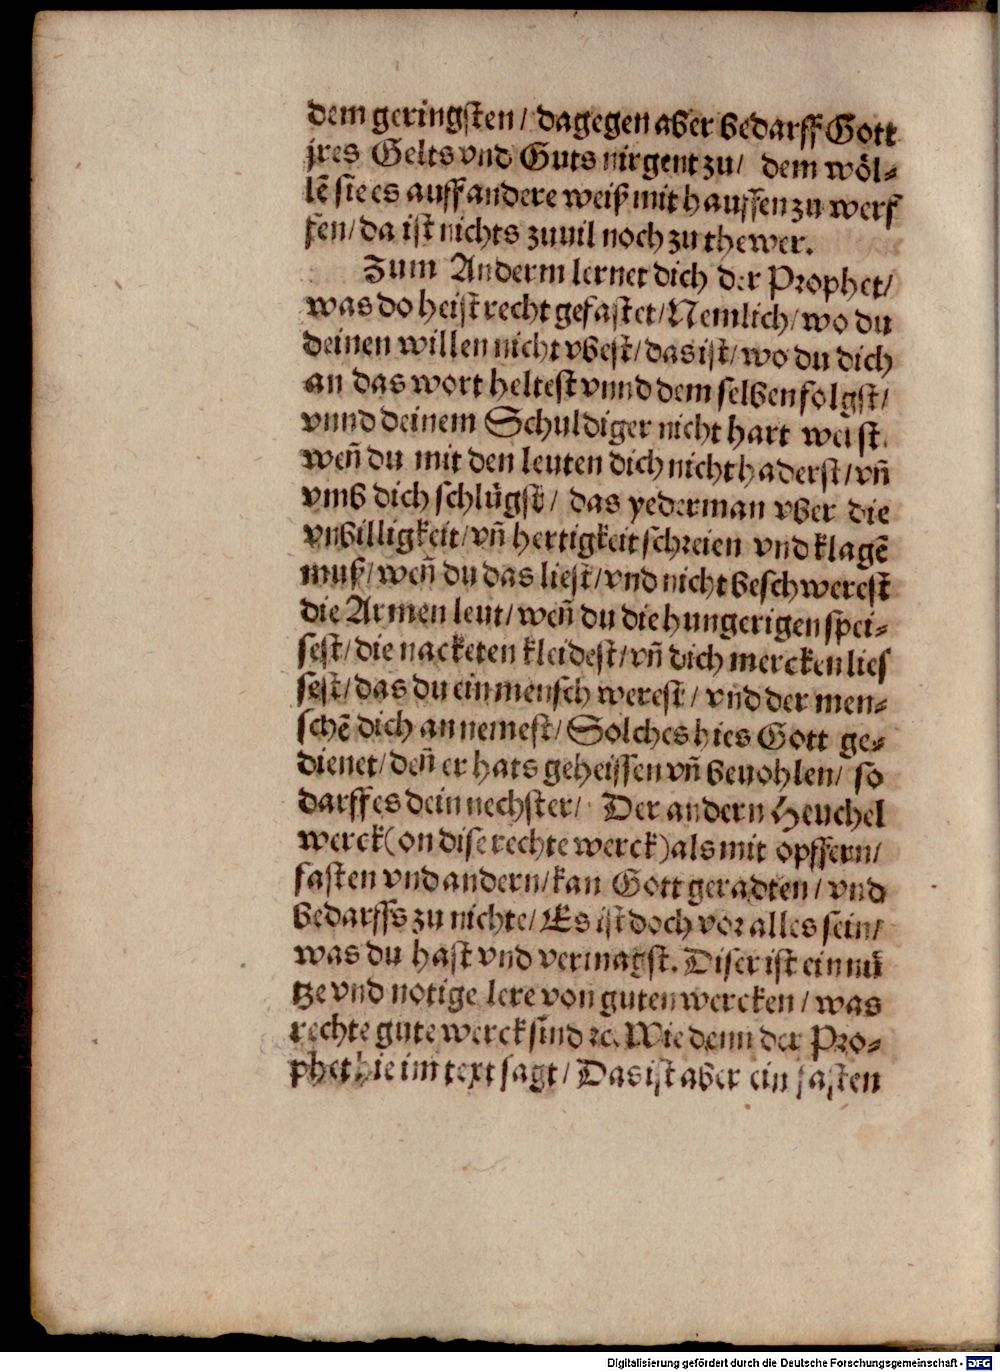 dem geringsten/ dagegen aber bedarff Gott
jres Gelts vnd Guts nirgent zu/ dem wöl-
lẽ sie es auff andere weiß mit hauffen zu werf
fen/ da ist nichts zuuil noch zu thewer.
Zum Anderm lernet dich der Prophet/
was do heist recht gefastet/ Nemlich/ wo du
deinen willen nicht vbest/ das ist/ wo du dich
an das wort heltest vnnd dem selben folgst/
vnnd deinem Schuldiger nicht hart weist.
weñ du mit den leuten dich nicht haderst/ vñ
vmb dich schlügst/ das yederman vber die
vnbilligkeit/ vñ hertigkeit schreien vnd klagẽ
muß/ weñ du das liest/ vnd nicht beschwerest
die Armen leut/ weñ du die hungerigen spei-
sest/ die nacketen kleidest/ vñ dich mercken lies
sest/ das du ein mensch werest/ vnd der men-
schẽ dich annemest/ Solches hies Gott ge-
dienet/ deñ er hats geheissen vñ beuohlen/ so
darff es dein nechster/ Der andern Heuchel
werck (on dise rechte werck) als mit opffern/
fasten vnd andern/ kan Gott geradten/ vnd
bedarffs zu nichte/ Es ist doch vor alles sein/
was du hast vnd vermagst. Diser ist ein nü
tze vnd notige lere von guten wercken/ was
rechte gute werck sind ꝛc. Wie denn der Pro-
phet hie im text sagt/ Das ist aber ein fasten
Digitalisierung gefördert durch die Deutsche Forschungsgemeinschaft - DFG